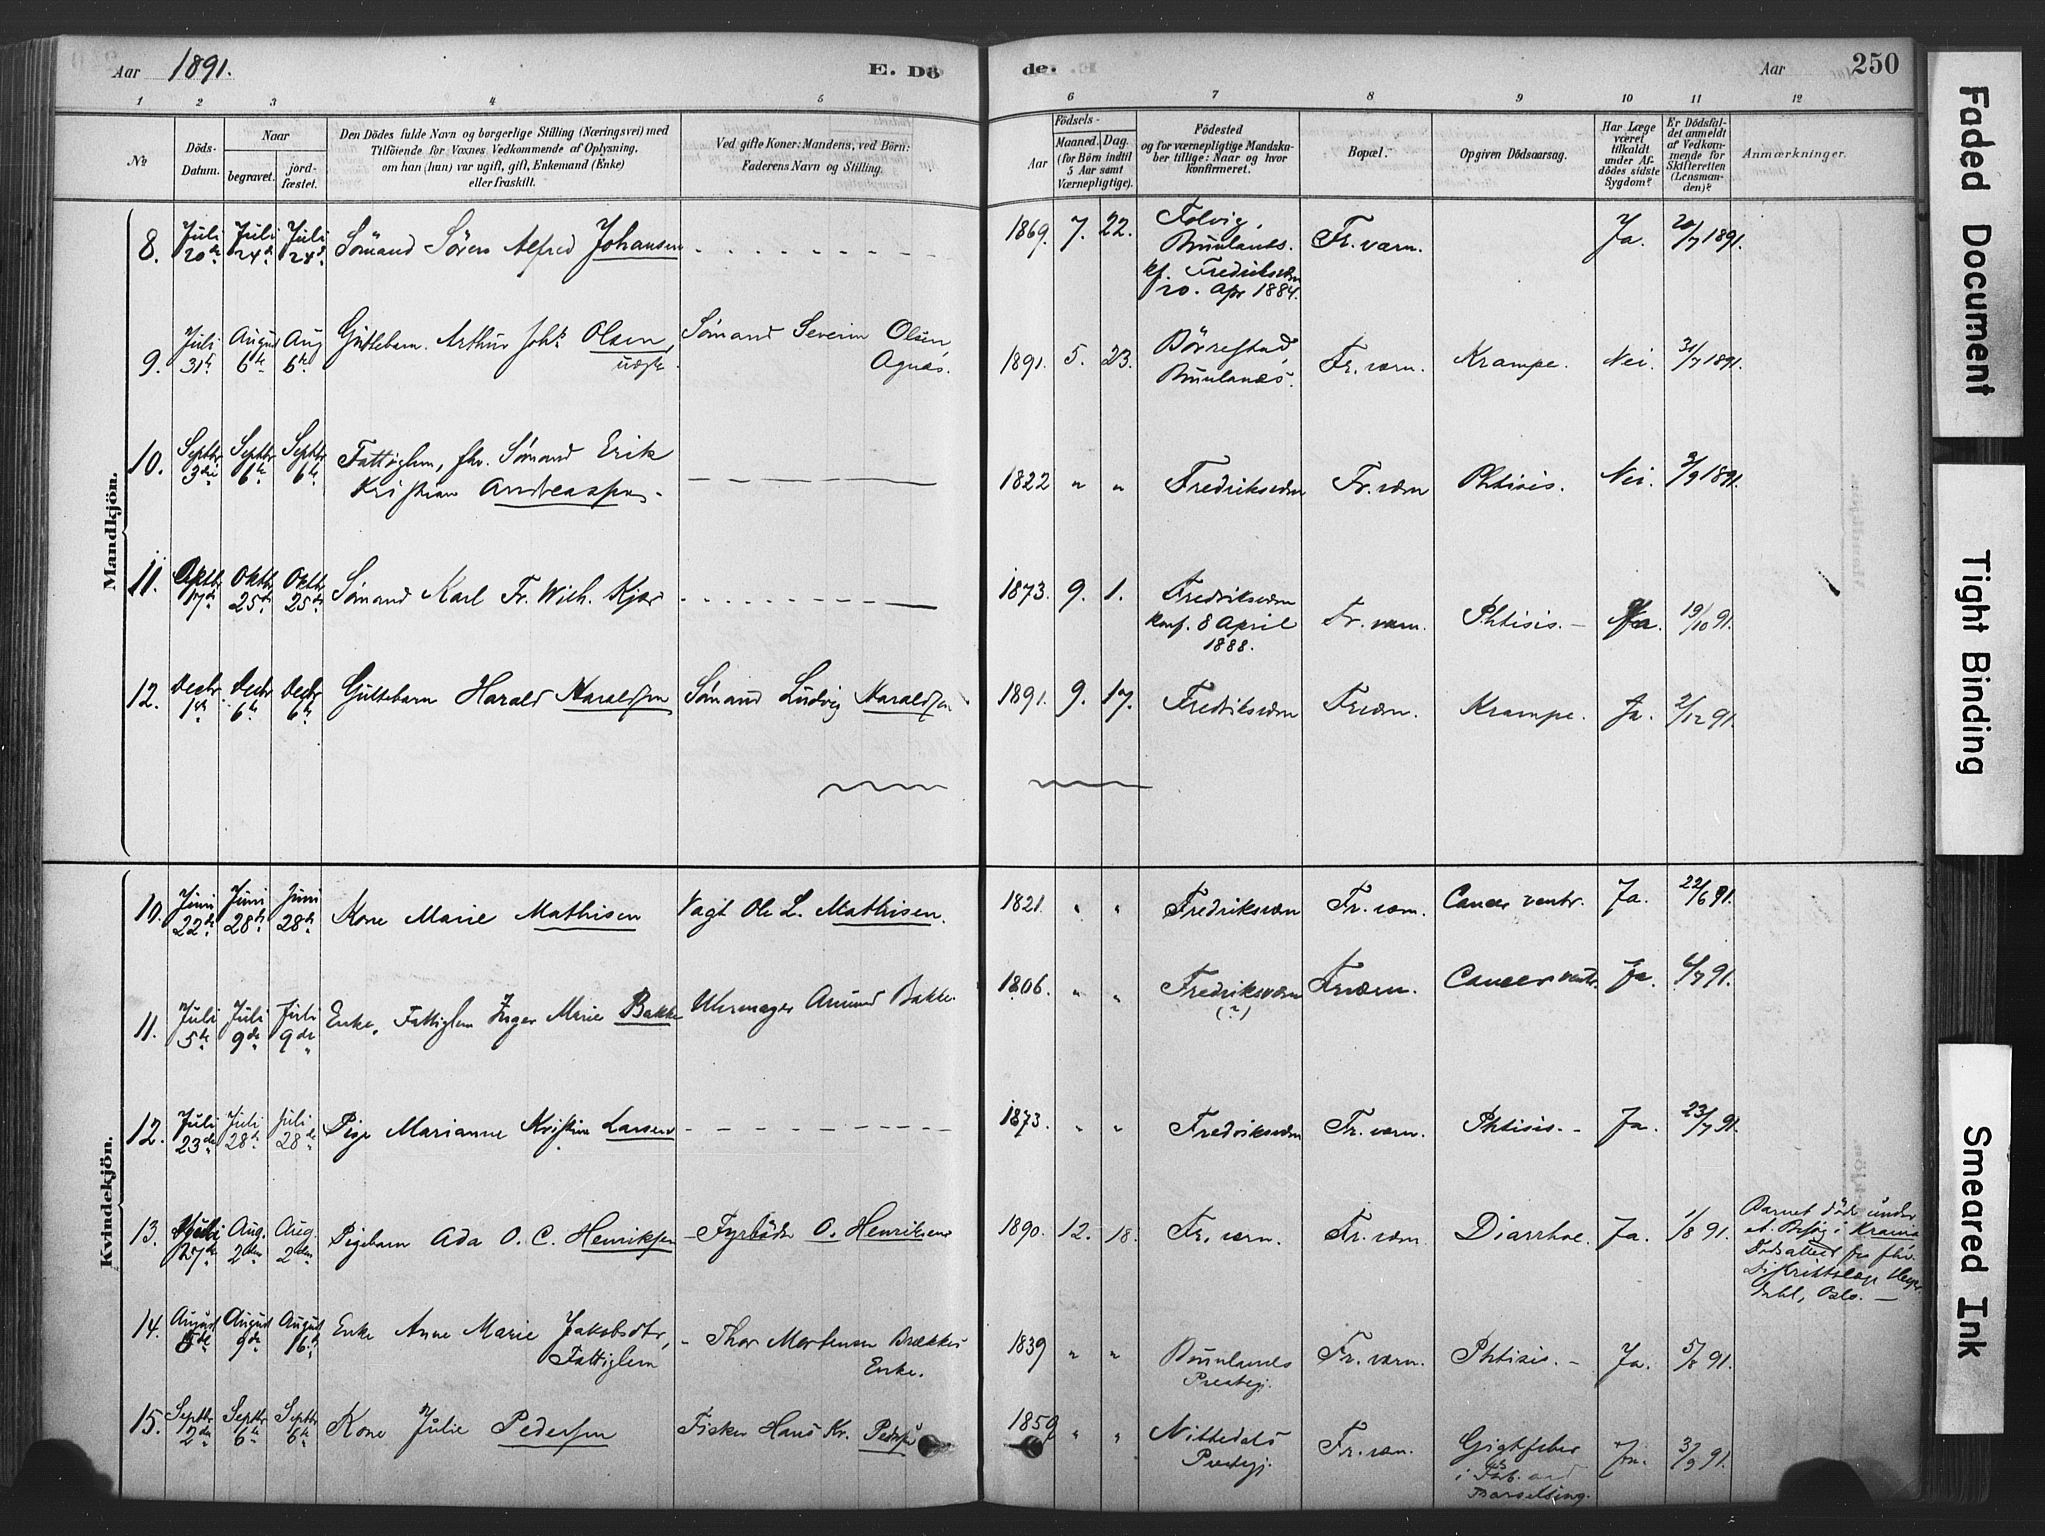 Aar 1891. E. Dö
de. Aar 250
1 2 3 4 5
6 7 8 9 10 11 12
№
Döds-
Datum.
Naar
begravet.
jord-
fæstet.
Den Dödes fulde Navn og borgerlige Stilling (Næringsvei) med
Tilföiende for Voxnes Vedkommende af Oplysning,
om han (hun) var ugift, gift, Enkemand (Enke)
eller fraskilt.
Ved gifte Koner: Mandens, ved Börn:
Faderens Navn og Stilling.
Födsels-
Aar
Maaned. Dag.
(for Börn indtil
5 Aar samt
Værnepligtige).
Födested
og for værnepligtige Mandska-
ber tillige: Naar og hvor
konfirmeret.
Bopæl.
Opgiven Dödsaarsag.
Har Læge
været
tilkaldt
under Af-
dödes sidste
Sygdom?
Er Dödsfal-
det anmeldt
af Vedkom-
mende for
Skifteretten
(Lensman-
den)?
Anmærkninger.
Mandkjön.
8. Juli 20de Juli 24de Juli 24de Sömand Sören Alfred Johansen 1869. 7. 22. Tolvig, Fr. værn. Ja. 20/7 1891.
Brunlanes.
kf. Fredriksværn
20. Apr 1884.
9. Juli 31te August 6te Aug 6te Guttebarn Arthur Joh. Olsen, Sömand Severin Olsen, 1891. 5. 23. Börrestad, Fr. værn. Krampe. Nei. 31/7 1891.
uægte. Agnæs. Brunlanes.
10. Septbr 3die Septbr 6te Septbr 6te Fattiglem, fhv. Sömand Erik 1822 " " Fredriksværn Fr. værn Phtisis. Nei. 3/9 1891.
Kristian Andreassen
11. Oktbr 17de Oktbr 25de Oktbr 25de Sömand Karl Fr. Wilh. Kjær 1873. 9. 1. Fredriksværn Fr. værn. Phtisis. Ja. 19/10 91.
konf. 8 April
1888.
12. Decbr 1ste Decbr 6te Decbr 6te Guttebarn Harald Haraldsen Sömand Ludvig Haraldsen 1891. 9. 17. Fredriksværn Fr.værn. Krampe. Ja. 2/12 91.
Kvindekjön.
10. Juni 22de Juni 28de Juni 28de Kone Marie Mathisen Vagt Ole L. Mathisen. 1821. " " Fredriksværn Fr. værn. Cancer ventr. Ja. 22/6 91.
11. Juli 5te Juli 9de Juli 9de Enke, Fattiglem Inger Marie Bakke Uhrmager Amund Bakke. 1806. " " Fredriksværn Fr.værn. Cancer ventr. Ja. 6/7 91.
(?)
12. Juli 23de Juli 28de Juli 28de Pige Marianne Kristine Larsen 1873. " " Fredriksværn Fr. værn. Phtisis. Ja. 23/7 91.
13. Juli 27de Aug. 2den Aug. 2den Pigebarn Ada O. C. Henriksen Fyrböder O. Henriksen 1890. 12. 18. Fr. værn. Fr. værn Diarrhoe. Ja. 1/8 91. Barnet döde under
et Besög i Krania
Dödsattest fra fhv.
Distriktslæge
Dahl, Oslo.
14. August 5te August 9de August 16de Enke Anne Marie Jakobsdtr, Thor Mortensen Brækkes 1839 " " Brunlanes Fr. værn. Phtisis. Ja. 5/8 91.
Fattiglem Enke. Prestegj.
15. Septbr 2den Septbr 6te Septbr 6te Kone Julie Pedersen Fisker Hans Kr. Pedersen 1859 " " Nittedals Fr. værn. Gigtfeber Ja. 3/9 91.
Prestegj. i Forb. med
Barselseng.
Faded Document
Tight Binding
Smeared Ink